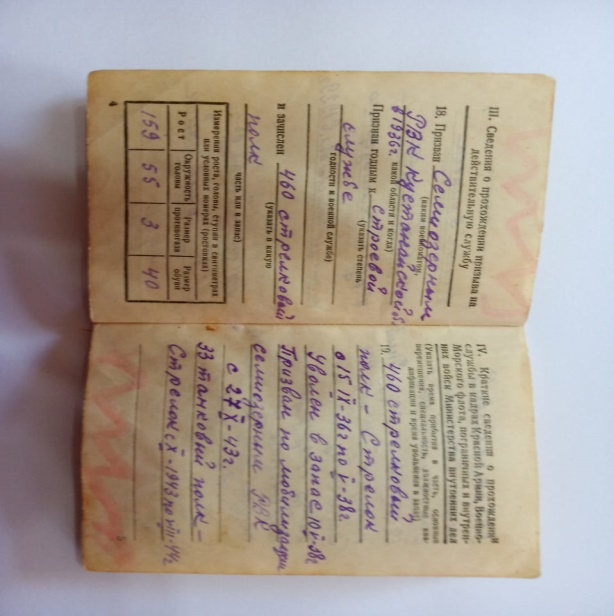 III. Сведения о прохождении призыва на
действительную службу
18. Призван Семиозерным
(каким военкоматом,
РВК Кустанайской об.
в 1936г.
какой области и когда)
Признан годным к строевой
(указать степень
службе
годности к военной службе)
и зачислен 460 стрелковый
(указать в какую
полк
часть или в запас)
Измерения роста, головы, ступни в сантиметрах
или условных номерах (ростовках)
Рост Окружность головы Размер противогаза Размер обуви
159 55 3 40
4
IV. Краткие сведения о прохождении
службы в кадрах Красной Армии, Военно-
Морского флота, пограничных и внутрен-
них войск Министерства внутренних дел
(Указать время прибытия в часть, основные
перемещения, специальность, должностное ква-
и время увольнения в запас)
19. 460 стрелковый
полк - Стрелок
с 15 IX-36г по V-38г
Уволен в запас 10 V-38г
Призван по мобилизации
семиозерным РВК
с 27 X-43г.
33 танковый полк -
Стрелок с X-1943 по VII-44г
5